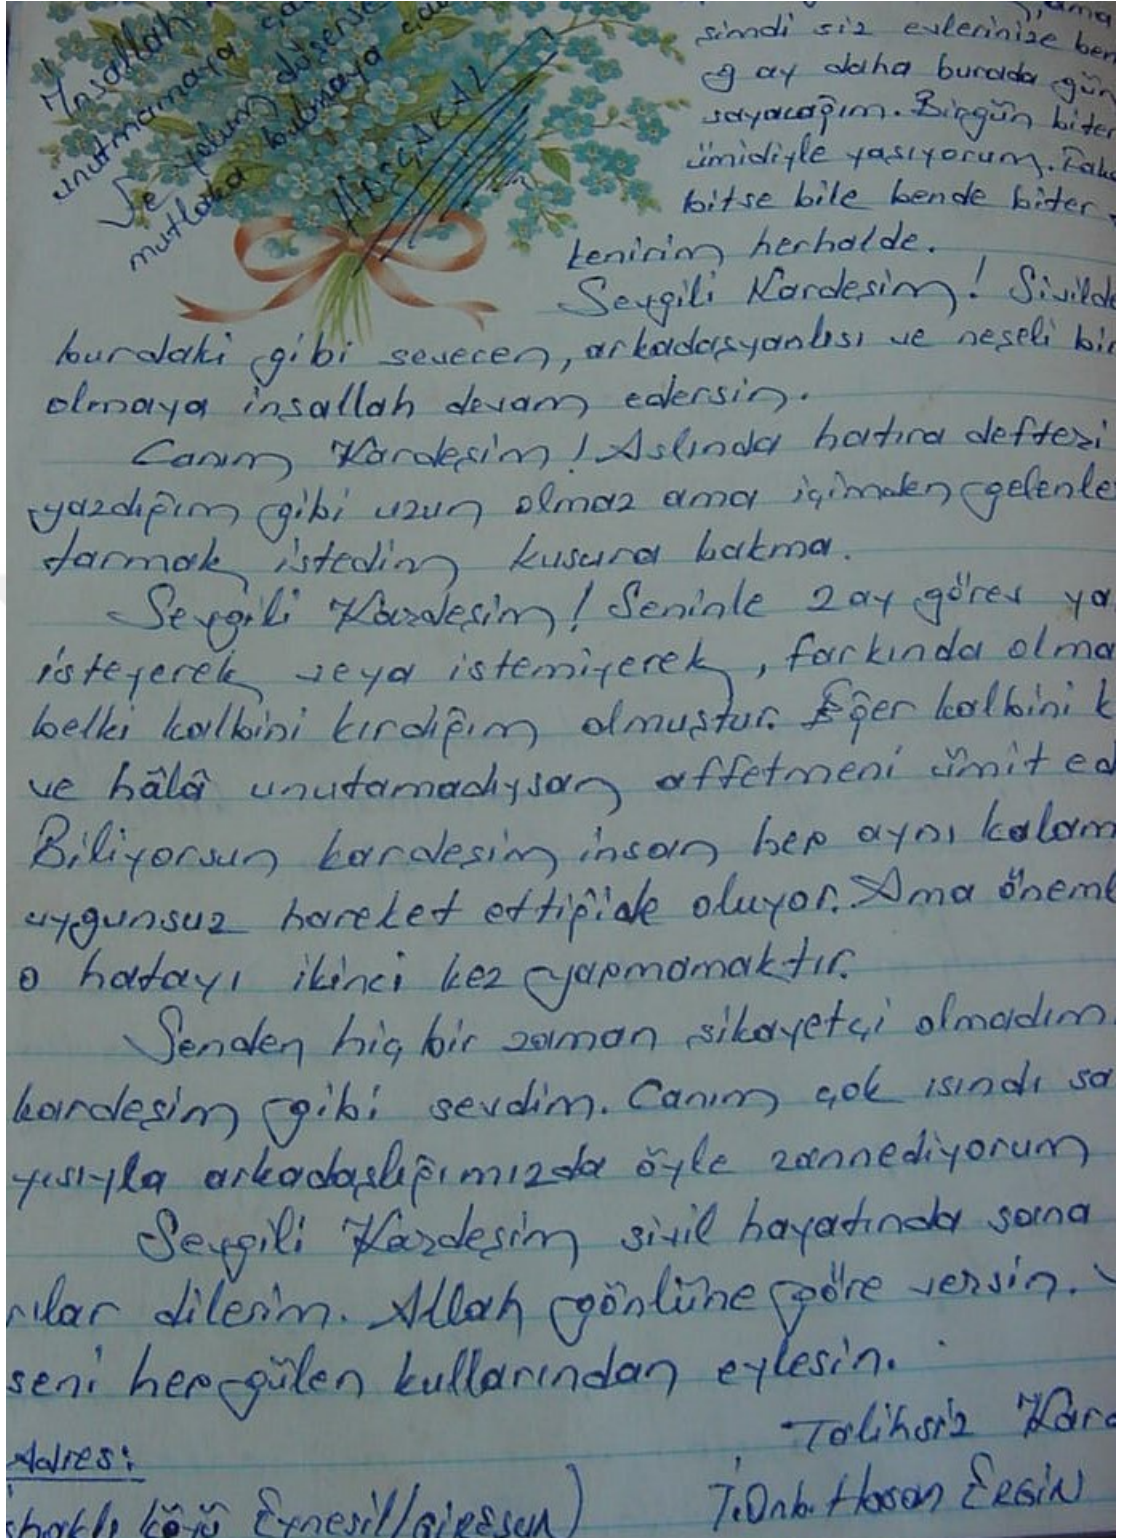 İnşallah
unutmamaya
Ve yolum düşerse
mutlaka bulmaya
HOŞÇAKAL
ama
şimdi siz evlerinize ben
9 ay daha burada gün
sayacağım. Birgün biter
ümidiyle yaşıyorum. Fak
bitse bile bende biter
kenirim herhalde.
Sevgili Kardeşim! Sivilde
burdaki gibi sevecen, arkadaşyanlısı ve neşeli bir
olmaya inşallah devam edersin.
Canım Kardeşim! Aslında hatıra defteri
yazdığım gibi uzun olmaz ama içimden gelenle
tarmak istedim kusura bakma.
Sevgili Kardeşim! Seninle 2 ay görev ya
isteyerek veya istemiyerek, farkında olma
belki kalbini kırdığım olmuştur. Eğer kalbini k
ve hâlâ unutamadıysan affetmeni ümit ed
Biliyorsun kardeşim insan hep aynı kalam
uygunsuz hareket ettiğide oluyor. Ama öneml
o hatayı ikinci kez yapmamaktır.
Senden hiç bir zaman şikayetçi olmadım
kardeşim gibi sevdim. Canım çok ısındı sa
yısıyla arkadaşlığımızda öyle zannediyorum
Sevgili Kardeşim sivil hayatında sana
rılar dilerim. Allah gönlüne göre versin. V
seni hep gülen kullarından eylesin.
Talihsiz Kard
Adres:
İ.Onb. Hasan ERGİN
köyü Eynesil/GİRESUN)